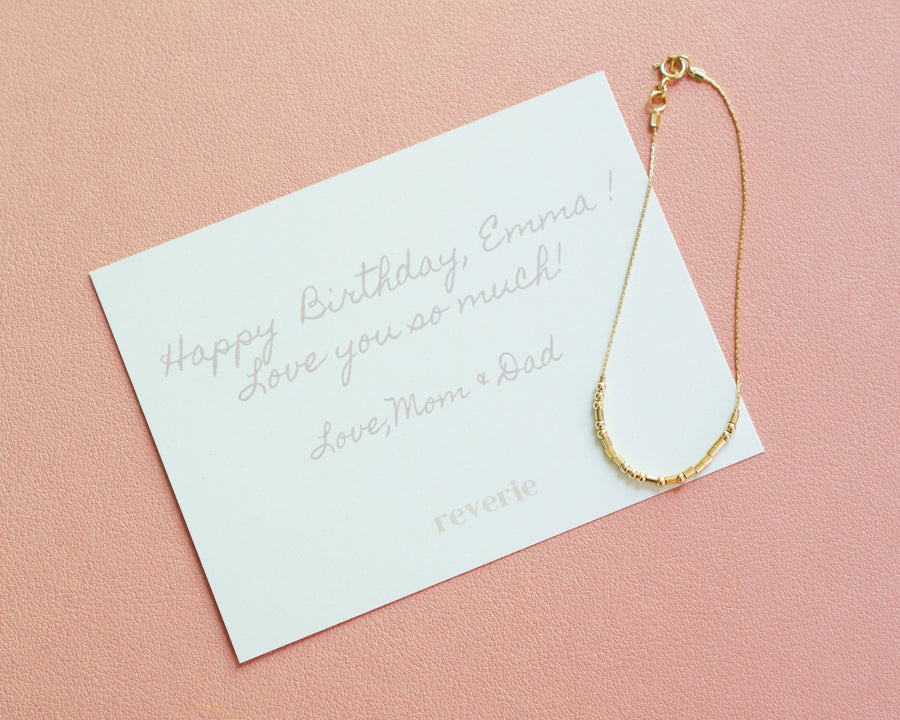 Happy Birthday, Emma!
Love you so much!
Love, Mom & Dad
reverie